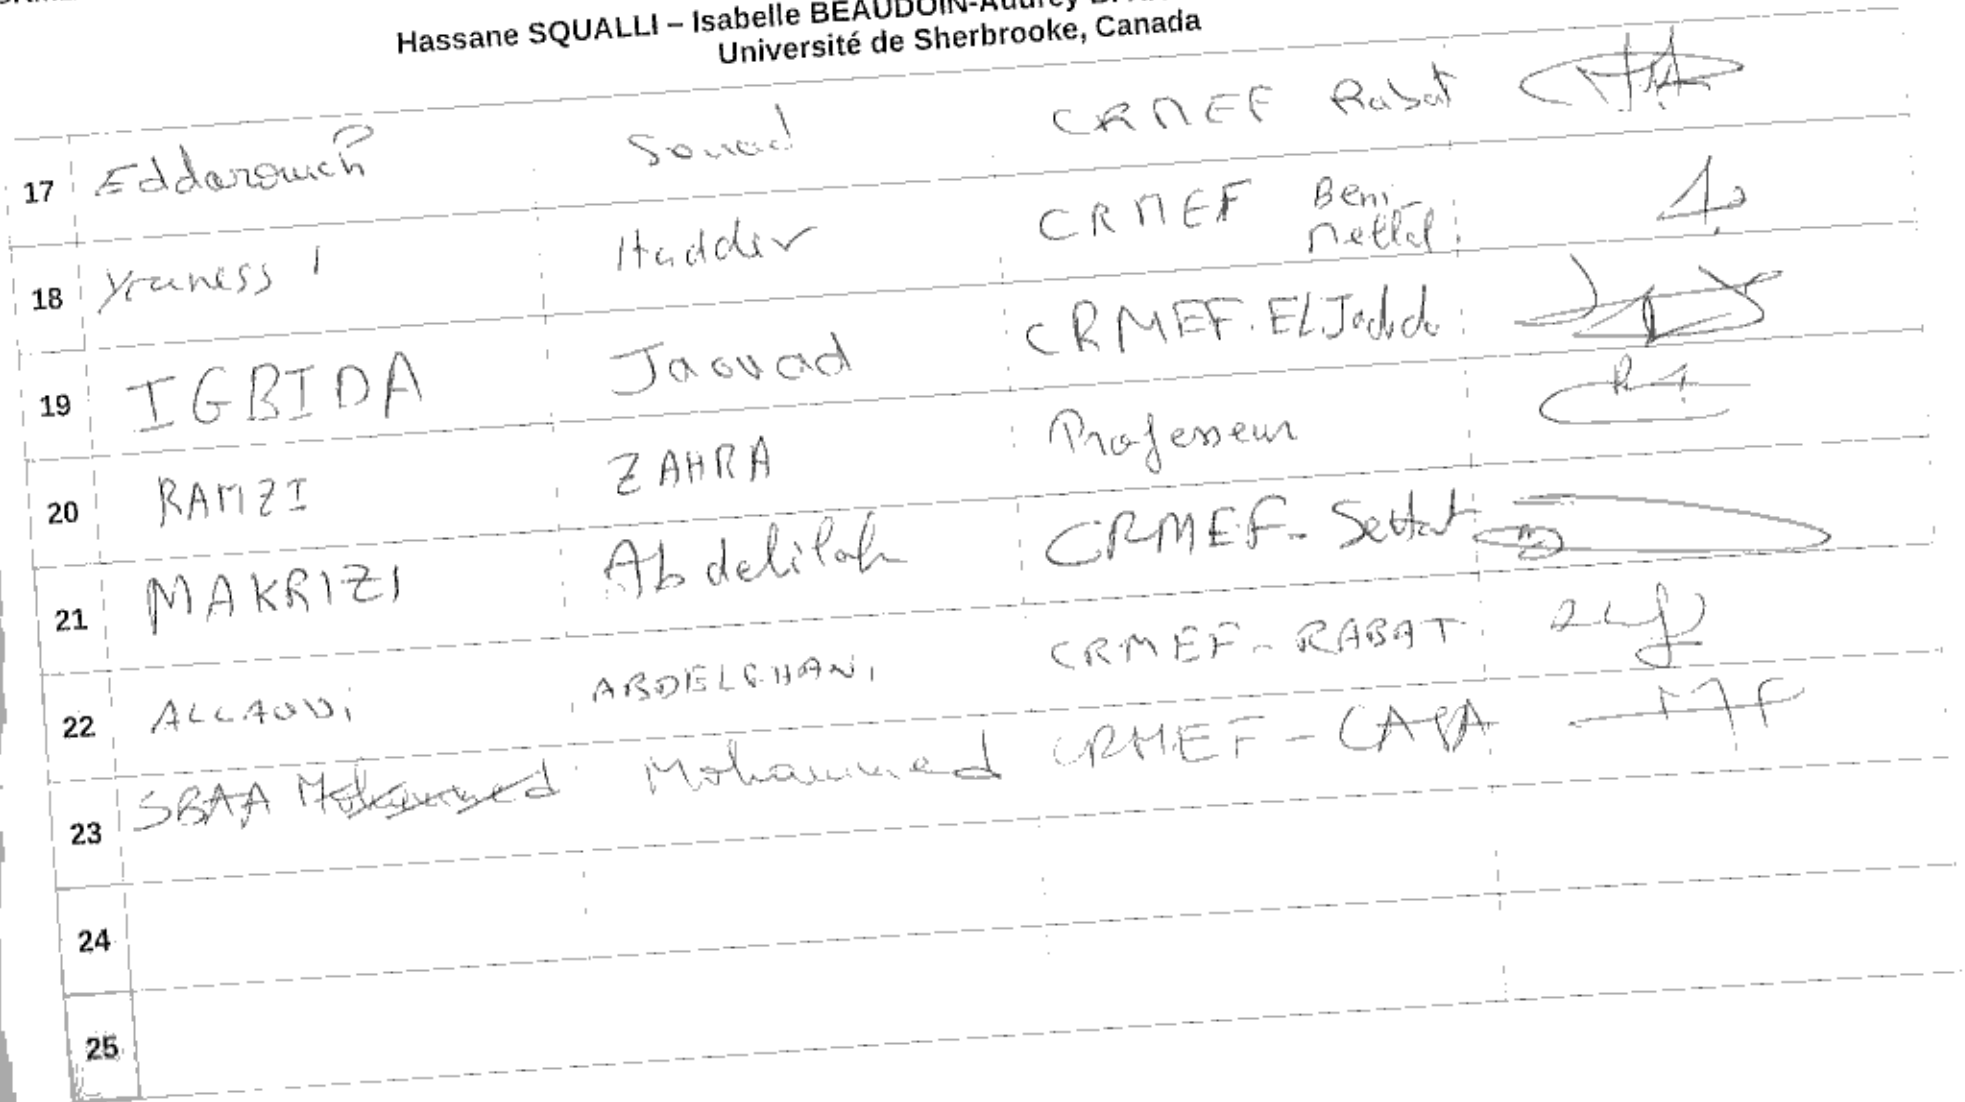 Hassane SQUALLI – Isabelle BEAUDOIN-Audrey
Université de Sherbrooke, Canada
17 Eddarouich Souad CRMEF Rabat
18 Youness Haddar CRMEF Beni-
Mellal
19 IGBIDA Jaouad CRMEF. EL Jadida
20 RAMZI ZAHRA Professeur
21 MAKRIZI Abdelilah CRMEF- Settat
22 ALLAOUi ABDELGHANi CRMEF- RABAT
23 SBAA Mohammed Mohammed CRMEF - CASA
24
25